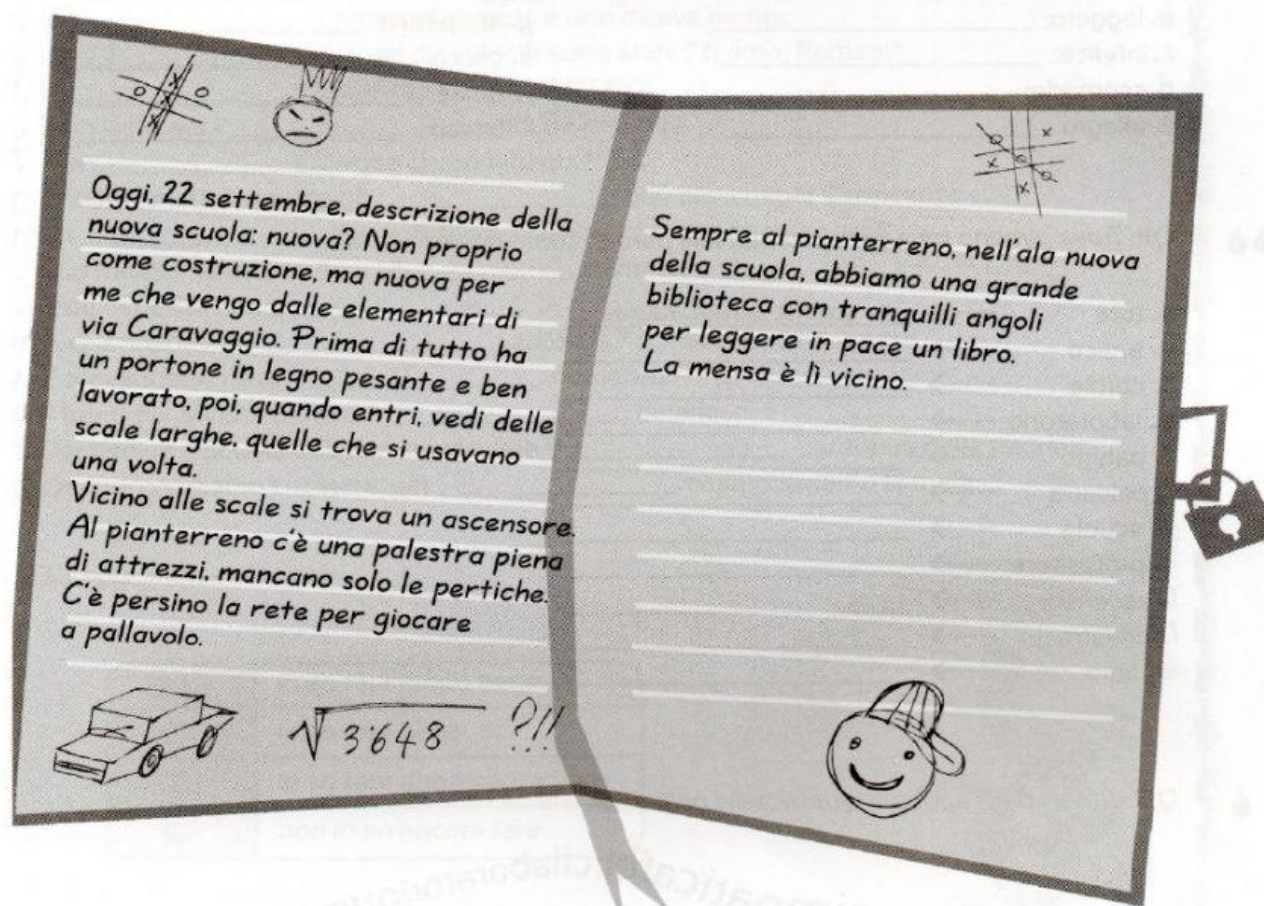 Oggi, 22 settembre, descrizione della
nuova scuola: nuova? Non proprio
come costruzione, ma nuova per
me che vengo dalle elementari di
via Caravaggio. Prima di tutto ha
un portone in legno pesante e ben
lavorato, poi, quando entri, vedi delle
scale larghe, quelle che si usavano
una volta.
Vicino alle scale si trova un ascensore.
Al pianterreno c'è una palestra piena
di attrezzi, mancano solo le pertiche.
C'è persino la rete per giocare
a pallavolo.
√3648 ?!!
Sempre al pianterreno, nell'ala nuova
della scuola, abbiamo una grande
biblioteca con tranquilli angoli
per leggere in pace un libro.
La mensa è lì vicino.